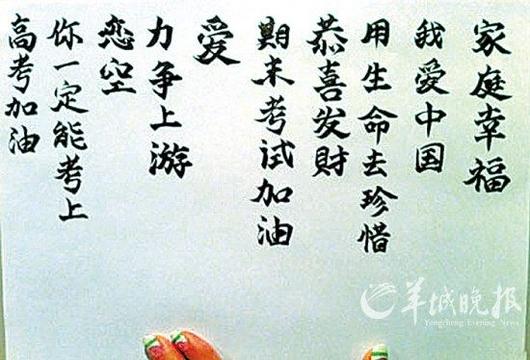 家庭幸福
我爱中国
用生命去珍惜
恭喜发财
期末考试加油
爱
力争上游
恋空
你一定能考上
高考加油
羊城晚报
Yangcheng Evening News